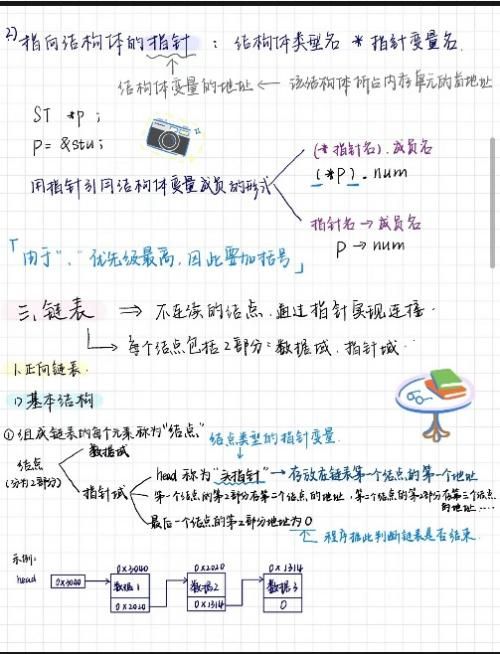 2) 指向结构体的指针 : 结构体类型名 * 指针变量名.
结构体变量的地址 ← 该结构体所占内存单元的首地址
ST *p ;
p= &stu ;
用指针引用结构体变量成员的形式
(*指针名).成员名
(*p).num
指针名→成员名
p→num
「由于“.”优先级最高,因此要加括号」
三.链表 ⇒ 不连续的结点.通过指针实现连接.
每个结点包括2部分:数据域.指针域..
1.正向链表.
1) 基本结构
①组成链表的每个元素称为“结点” 结点类型的指针变量.
结点
(分为2部分)
数据域
指针域
head 称为“头指针”→存放在链表第一个结点的第一个地址
第一个结点的第2部分存第二个结点的地址,第二个结点的第2部分存第三个结点
的地址....
最后一个结点的第2部分地址为0
程序据此判断链表是否结束.
示例:
head 0x3040
0x3040 0x2020 0x1314
数据1 数据2 数据3
0x2020 0x1314 0